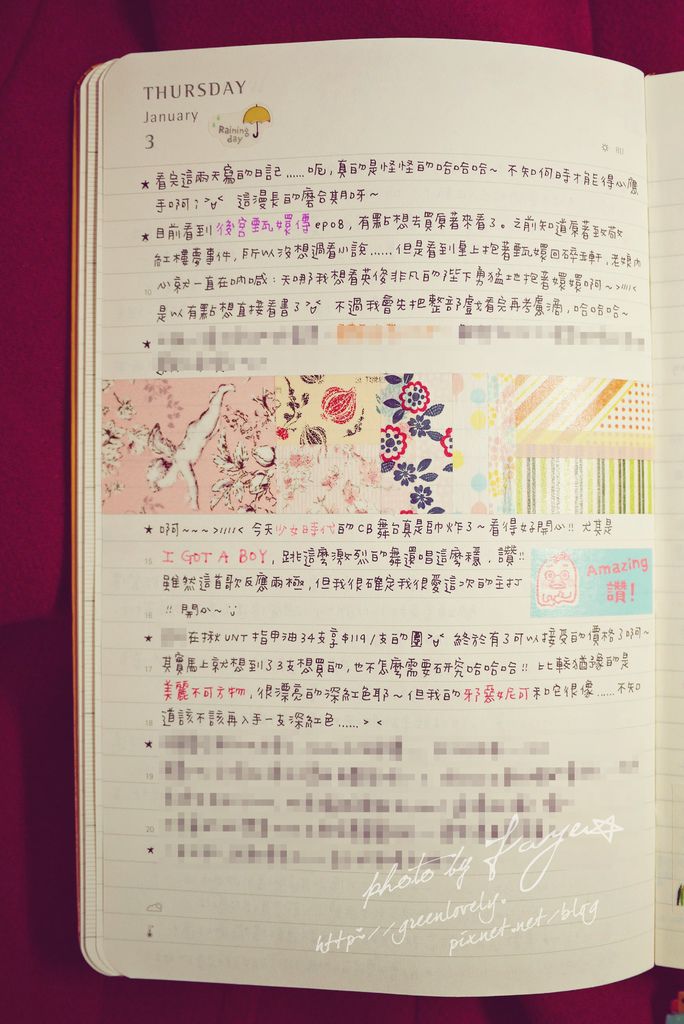 THURSDAY
January
3
Raining
day
★ 看完這兩天寫的日記……呃,真的是怪怪的哈哈哈~ 不知何時才能得心應
手啊?>"< 這漫長的磨合期呀~
★ 目前看到後宮甄嬛傳ep08,有點想去買原著來看了。之前知道原著致敬
紅樓夢事件,所以沒想過看小說……但是看到皇上抱著甄嬛回碎玉軒,老娘內
心就一直在吶喊:天哪我想看英俊非凡的陛下勇猛地抱著嬛嬛啊~>////<
10 是以有點想直接看書了>"< 不過我會先把整部戲看完再考慮滴,哈哈哈~
★
★ 啊~~~>////< 今天少女時代的CB舞台真是帥炸了~看得好開心!! 尤其是
15 I GOT A BOY,跳這麼激烈的舞還唱這麼穩,讚!!
雖然這首歌反應兩極,但我很確定我很愛這次的主打
16 !! 開心~
Amazing
讚!
★ 在揪UNT指甲油34支享$119/支的團>"< 終於有了可以接受的價格了啊~
17 其實馬上就想到了3支想買的,也不怎麼需要研究哈哈哈!! 比較猶豫的是
美麗不可方物,很漂亮的深紅色耶~但我的邪惡妮可和它很像……不知
18 道該不該再入手一支深紅色……> <
★
19
20
★
photo by Faye☆
http://greenlovely.
pixnet.net/blog